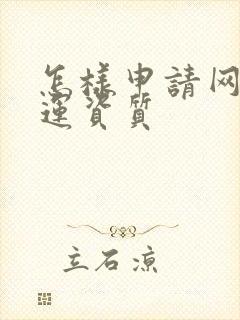 怎樣申請网
運资质
立石凉